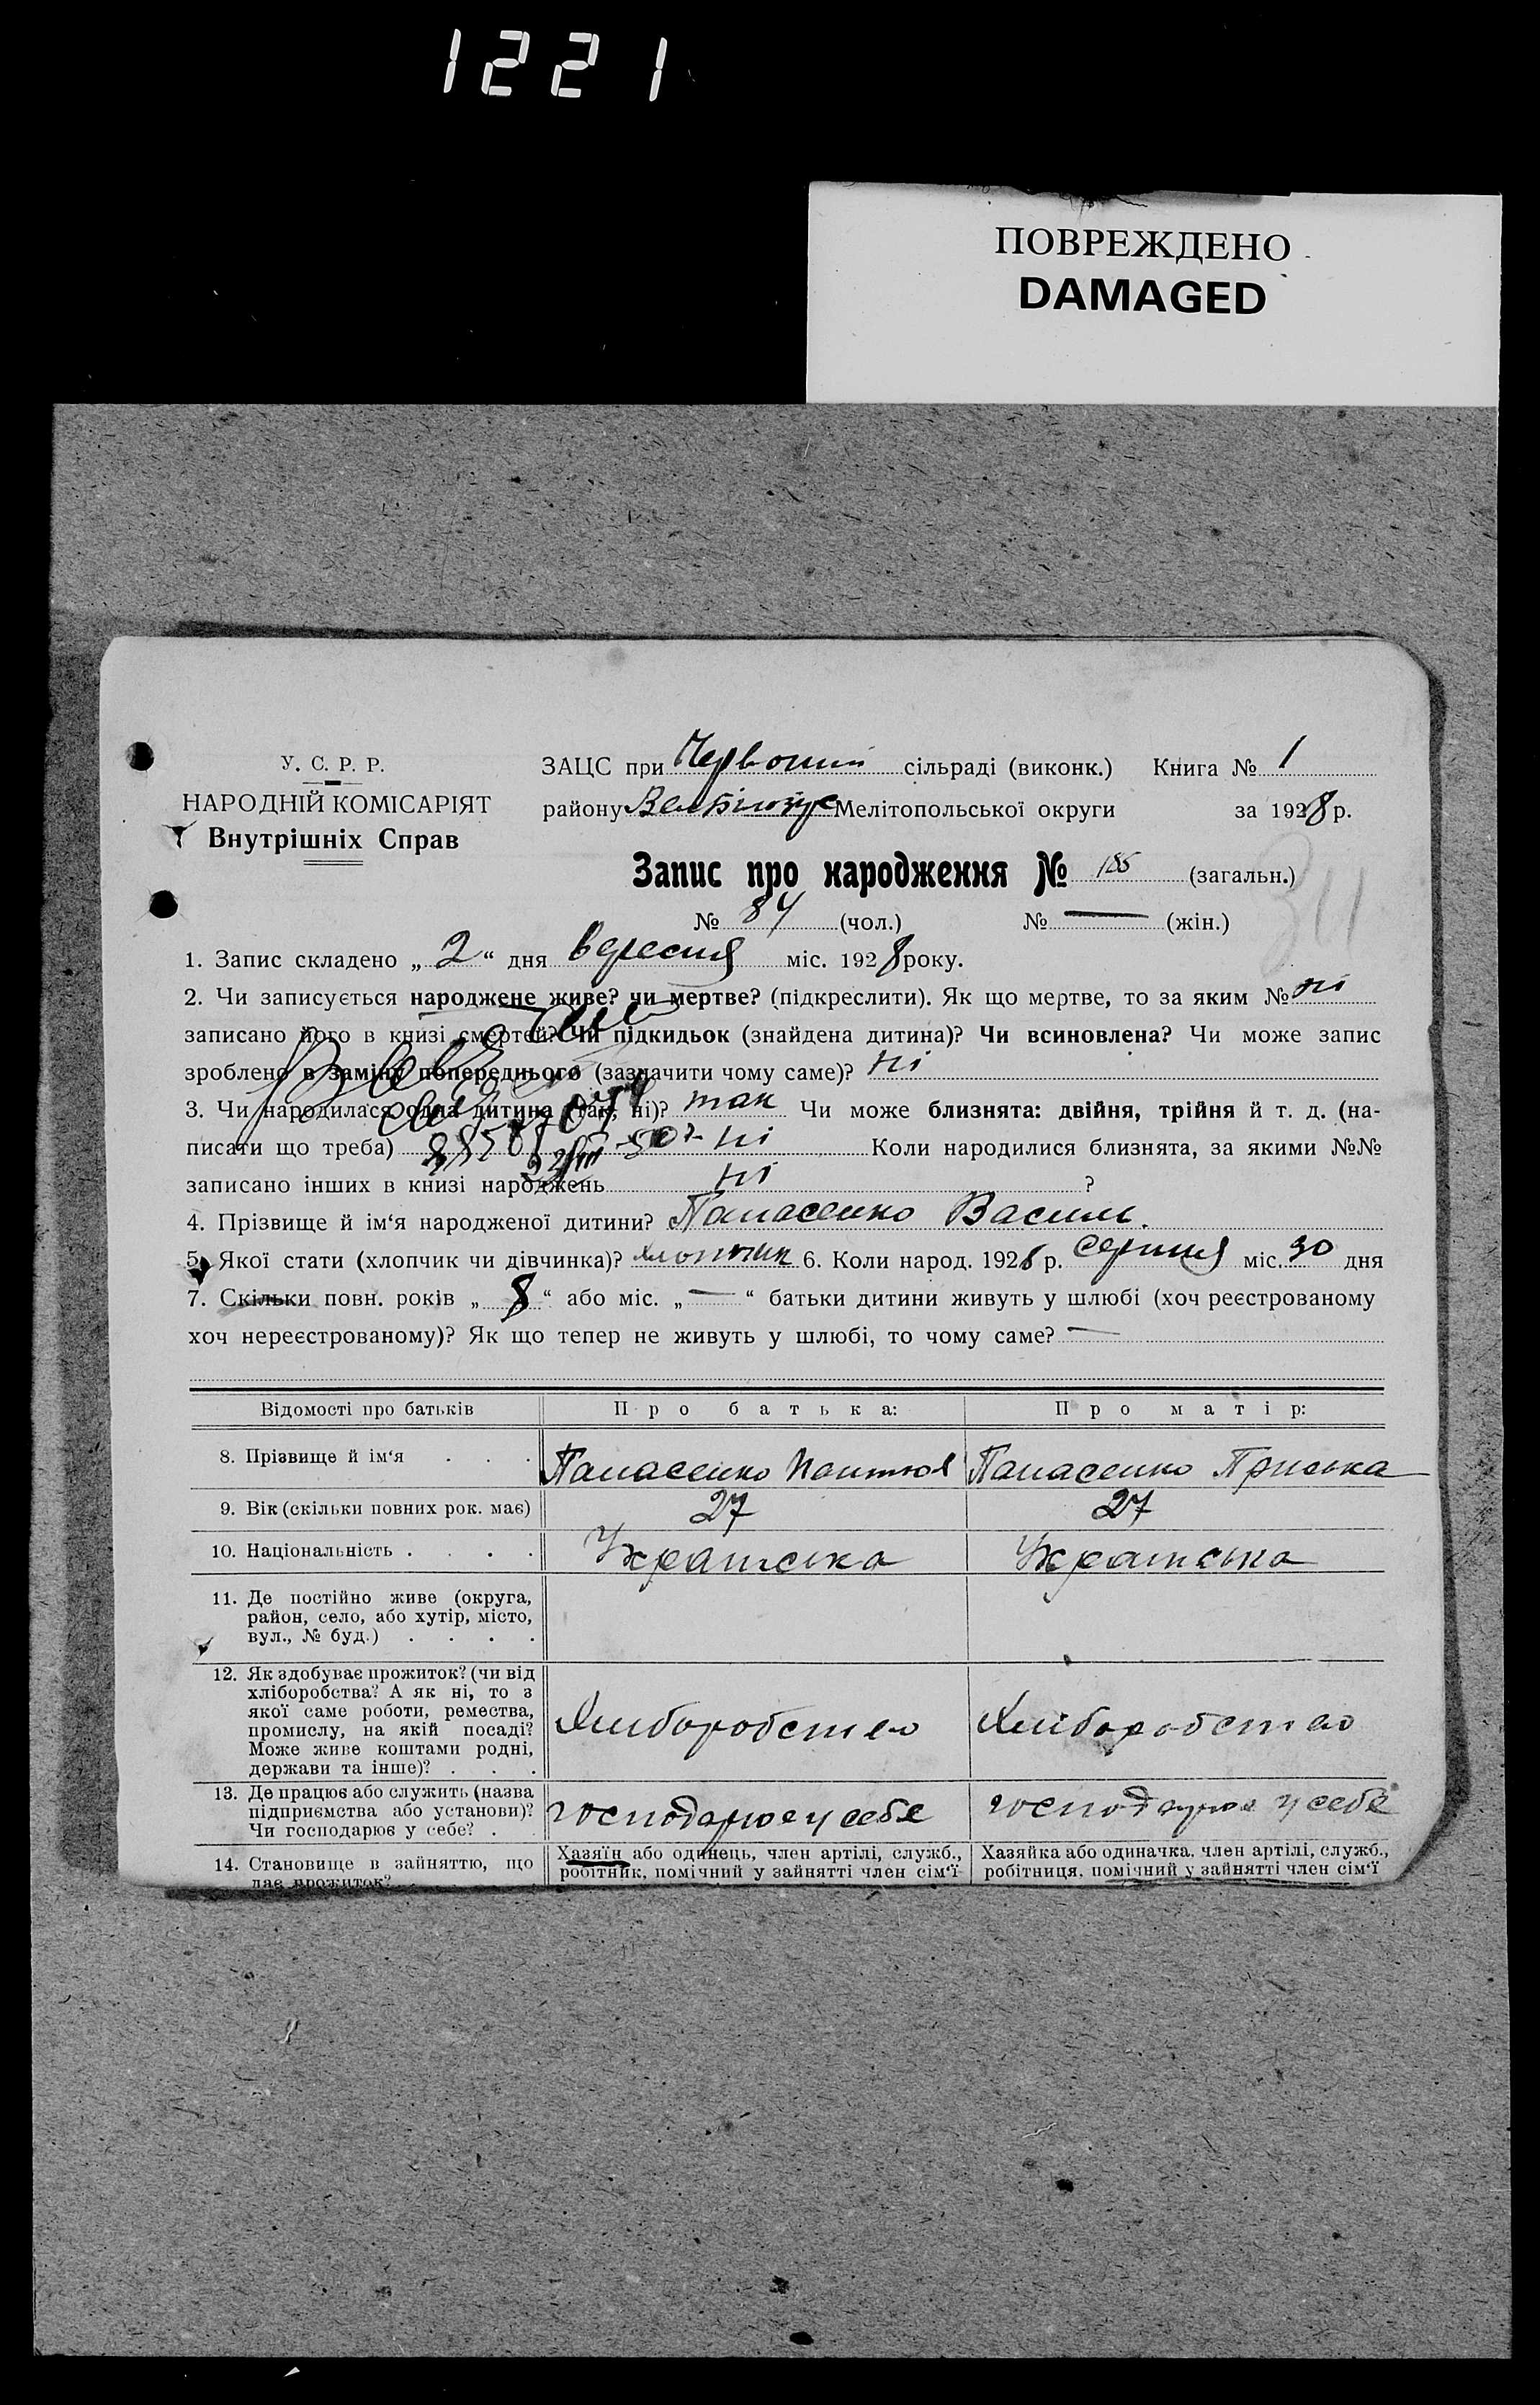 1221
ПОВРЕЖДЕНО
DAMAGED
У. С. Р. Р.
НАРОДНІЙ КОМІСАРІЯТ
Внутрішніх Справ
ЗАЦС при сільраді (виконк.) Книга № 1
району Мелітопольської округи за 1928 р.
Запис про народження № (загальн.)
№ 84 (чол.) № — (жін.)
1. Запис складено „ 2 “ дня вересня міс. 1928 року.
2. Чи записується народжене живе? чи мертве? (підкреслити). Як що мертве, то за яким № ні
записано його в книзі смертей? Чи підкидьок (знайдена дитина)? Чи всиновлена? Чи може запис
зроблено в заміну попереднього (зазначити чому саме)? ні
3. Чи народилася одна дитина (так, ні)? так Чи може близнята: двійня, трійня й т. д. (на-
писати що треба) ні Коли народилися близнята, за якими №№
записано інших в книзі народжень ні ?
4. Прізвище й ім‘я народженої дитини? Панасенко Василь.
5. Якої стати (хлопчик чи дівчинка)? хлопчик 6. Коли народ. 1928 р. серпня міс. 30 дня
7. Скільки повн. років „ 8 “ або міс. „ — “ батьки дитини живуть у шлюбі (хоч реєстрованому
хоч нереєстрованому)? Як що тепер не живуть у шлюбі, то чому саме? —
Відомості про батьків Про батька: Про матір:
8. Прізвище й ім‘я . . . Панасенко Панасенко Приська
9. Вік (скільки повних рок. має) 27 27
10. Національність . . . . Українська Українська
11. Де постійно живе (округа,
район, село, або хутір, місто,
вул., № буд.) . . . .
12. Як здобуває прожиток? (чи від
хліборобства? А як ні, то з
якої саме роботи, ремества,
промислу, на якій посаді?
Може живе коштами родні,
держави та інше)? . . .
Хліборобство Хліборобство
13. Де працює або служить (назва
підприємства або установи)?
Чи господарює у себе? .
господарює у себе господарює у себе
14. Становище в зайняттю, що
дає прожиток?
Хазяїн або одинець, член артілі, служб.,
робітник, помічний у зайнятті член сім‘ї
Хазяйка або одиначка, член артілі, служб.,
робітниця, помічний у зайнятті член сім‘ї